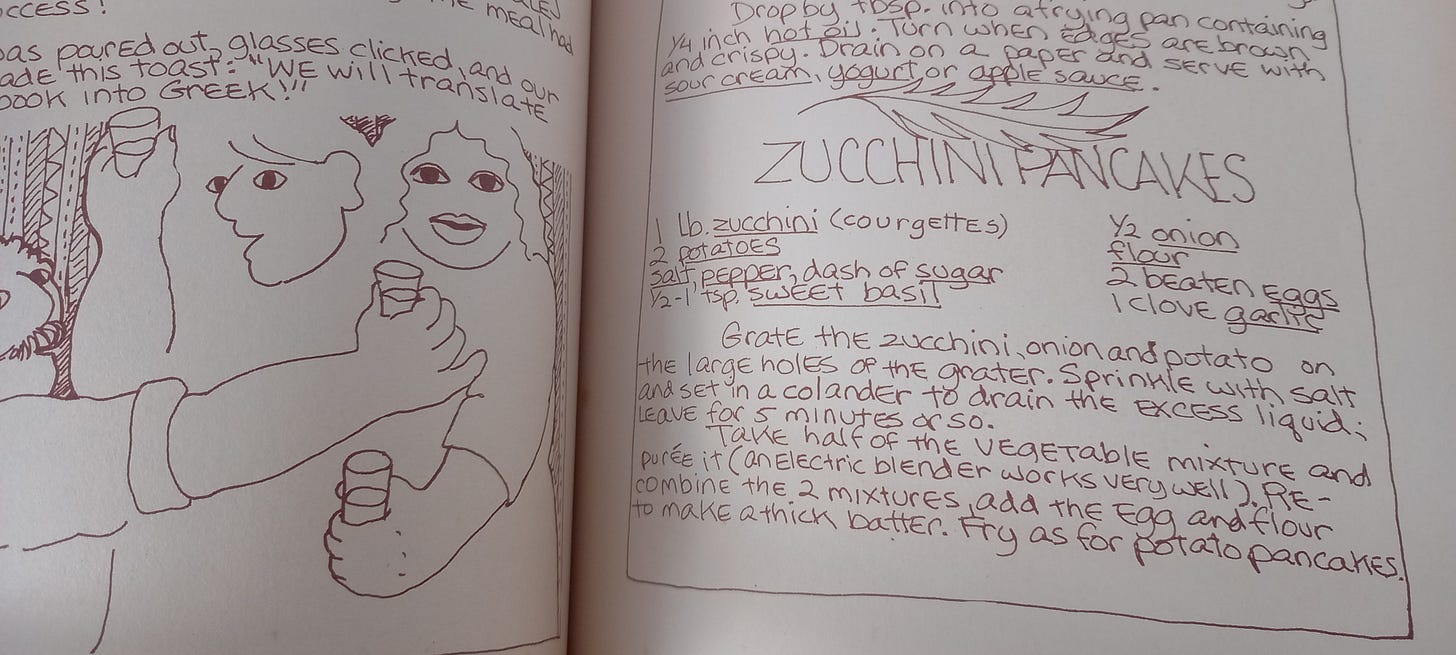 ccess!
meal had
as poured out, glasses clicked, and our
ade this toast: "WE will translate
book into GREEK!"
Drop by tbsp. into a frying pan containing
1/4 inch hot oil. Turn when edges are brown
and crispy. Drain on a paper and serve with
sour cream, yogurt or apple sauce.
ZUCCHINI PANCAKES
1 lb. zucchini (courgettes)
2 potatoes
salt, pepper, dash of sugar
1/2-1 tsp. sweet basil
1/2 onion
flour
2 beaten eggs
1 clove garlic
Grate the zucchini, onion and potato on
the large holes of the grater. Sprinkle with salt
and set in a colander to drain the excess liquid;
leave for 5 minutes or so.
Take half of the vegetable mixture and
purée it (an electric blender works very well). Re-
combine the 2 mixtures, add the egg and flour
to make a thick batter. Fry as for potato pancakes.